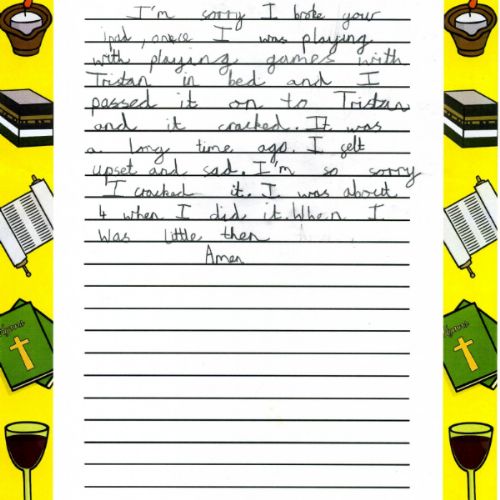 I'm sorry I broke your
ipad, once I was playing
with playing games with
Tristan in bed and I
passed it on to Tristan
and it cracked. It was
a long time ago. I felt
upset and sad. I'm so sorry
I cracked it. I was about
4 when I did it. When I
was little then
Amen
Hymns